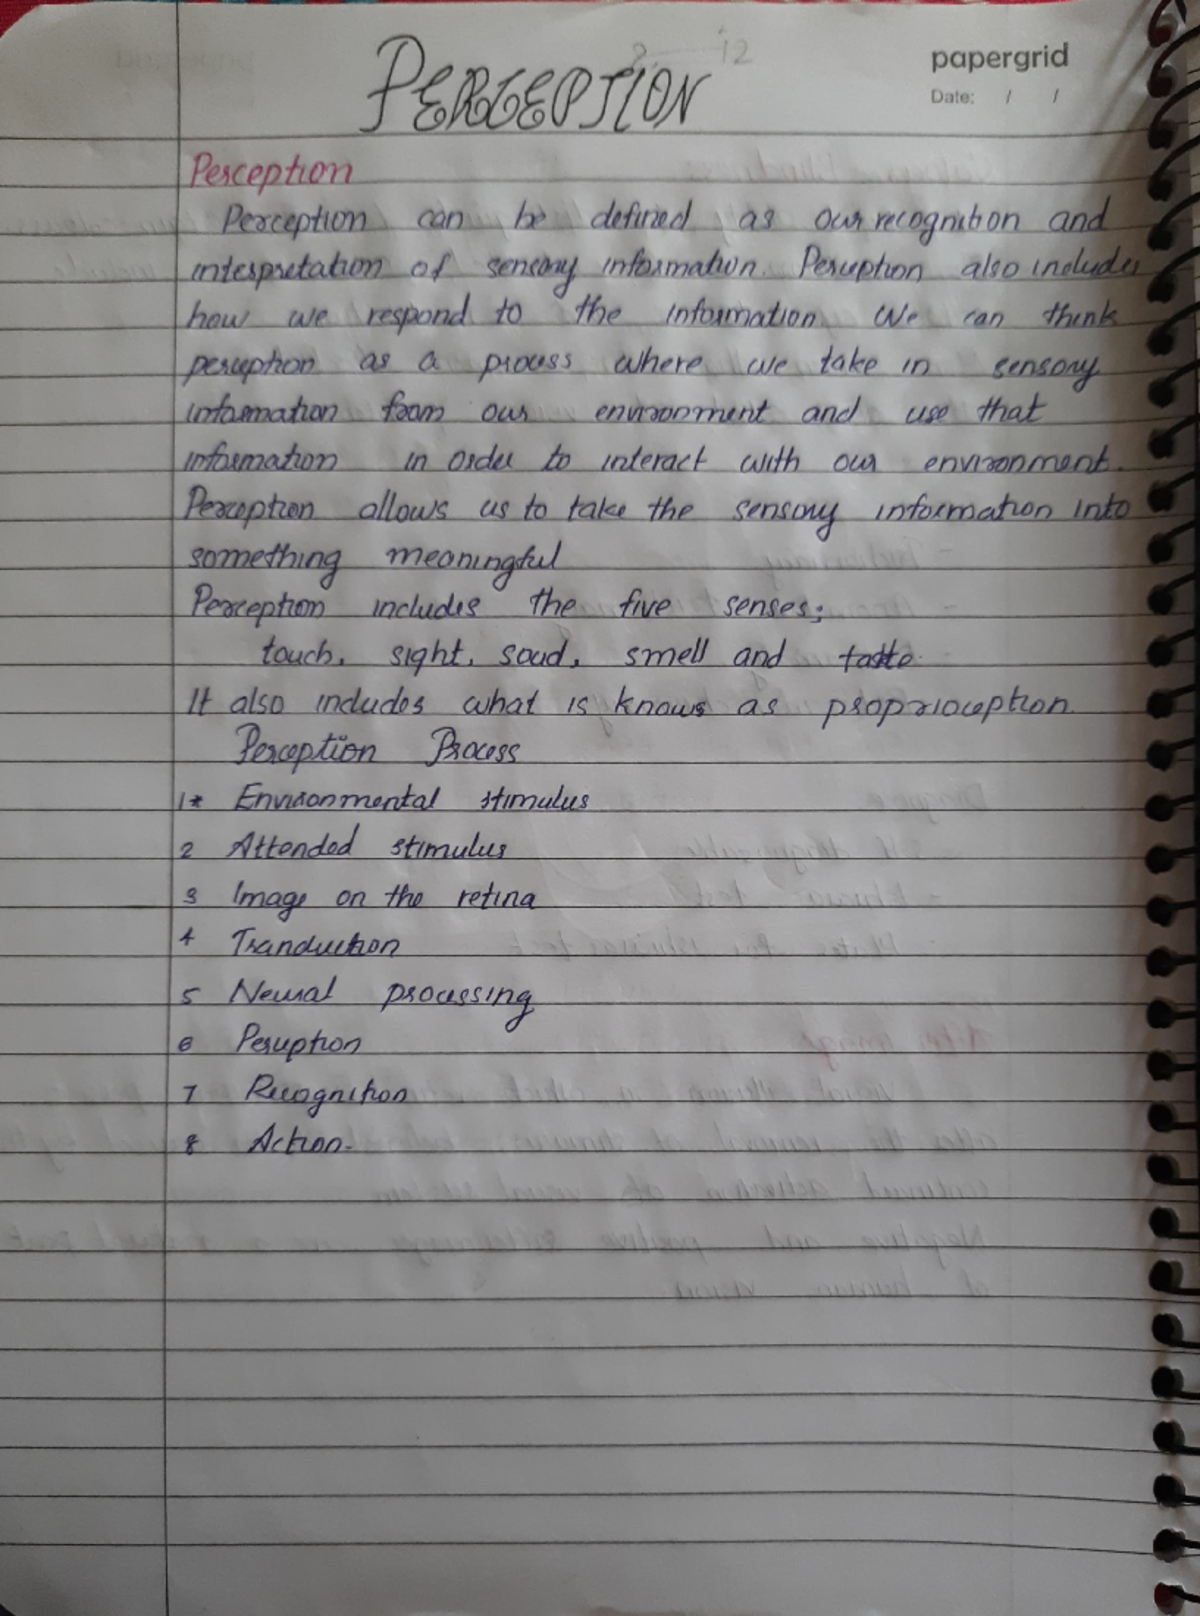 PERCEPTION
papergrid
Date: / /
Perception
Perception can be defined as our recognition and
interpretation of sensory information. Perception also includes
how we respond to the information. We can think
perception as a process where we take in sensory
information from our environment and use that
information in order to interact with our environment.
Perception allows us to take the sensory information into
something meaningful
Perception includes the five senses;
touch, sight, soud, smell and taste.
It also includes what is knows as proprioception.
Perception Process
1* Environmental stimulus
2 Attended stimulus
3 Image on the retina
4 Tranduction
5 Neural processing
6 Perception
7 Recognition
8 Action.